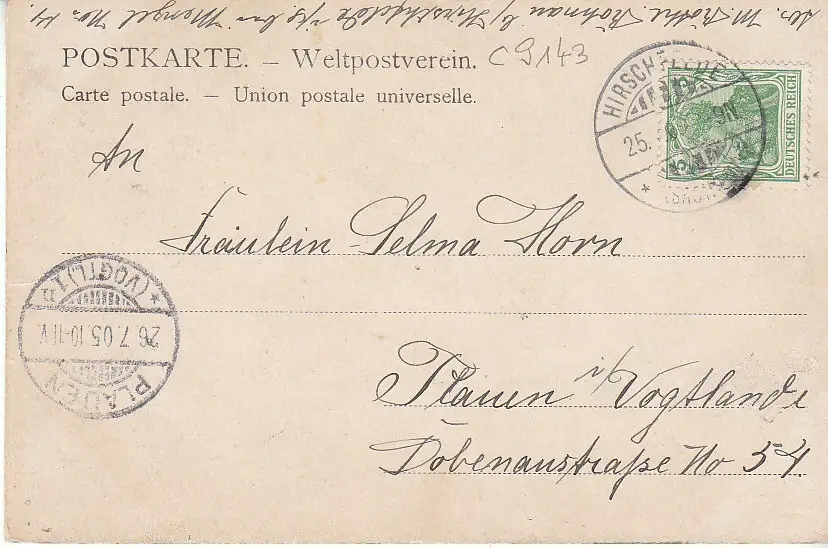 Abs. M. Röthe, Rohnau b/ Hirschfelde i/S. bei Menzel No. 14.
POSTKARTE. — Weltpostverein. C9143
Carte postale. — Union postale universelle.
HIRSCHFELDE
25. 9N
(SACHSEN)
DEUTSCHES REICH
An
Fräulein Selma Horn
Plauen i/Vogtlande
Dobenaustraße No 54.
PLAUEN
26.7.05.10-11V.
* (VOGTL) 1 n